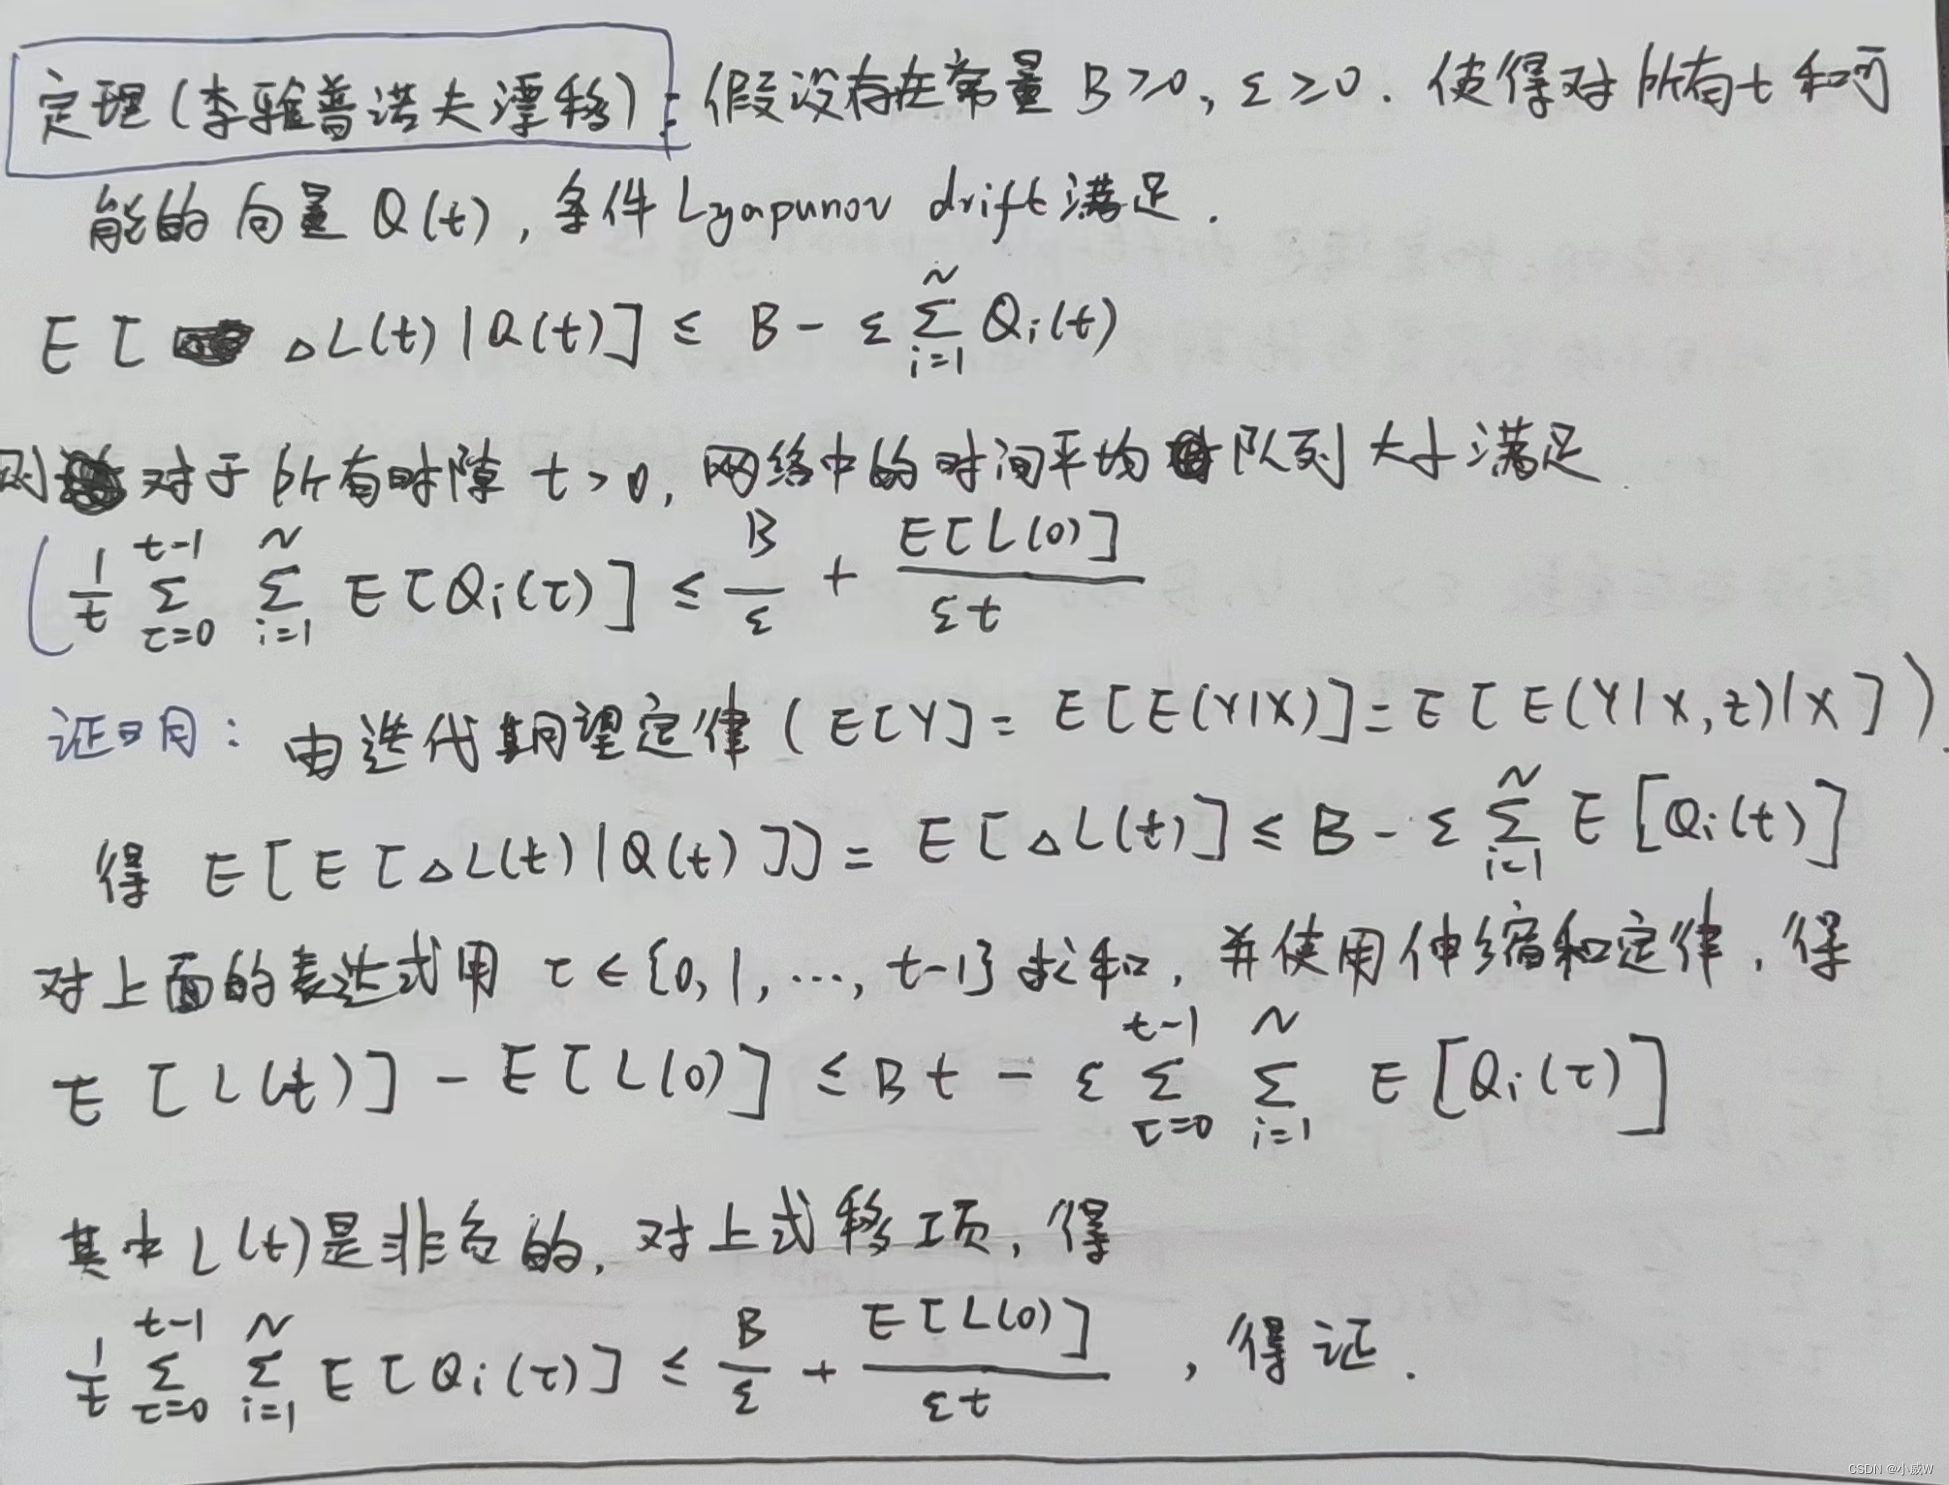 定理(李雅普诺夫漂移): 假设存在常量 B≥0, ε≥0. 使得对所有t和可
能的向量 Q(t), 条件 Lyapunov drift 满足.
E[ ΔL(t) | Q(t)] ≤ B - ε ∑_{i=1}^{N} Q_i(t)
则 对于所有时隙 t>0, 网络中的时间平均 队列大小满足
1/t ∑_{τ=0}^{t-1} ∑_{i=1}^{N} E[Q_i(τ)] ≤ B/ε + E[L(0)]/(εt)
证明: 由迭代期望定律 (E[Y] = E[E(Y|X)] = E[E(Y|X,z)|X])
得 E[E[ΔL(t)|Q(t)]] = E[ΔL(t)] ≤ B - ε ∑_{i=1}^{N} E[Q_i(t)]
对上面的表达式用 τ∈{0,1,…,t-1}求和, 并使用伸缩和定律, 得
E[L(t)] - E[L(0)] ≤ Bt - ε ∑_{τ=0}^{t-1} ∑_{i=1}^{N} E[Q_i(τ)]
其中 L(t)是非负的, 对上式移项, 得
1/t ∑_{τ=0}^{t-1} ∑_{i=1}^{N} E[Q_i(τ)] ≤ B/ε + E[L(0)]/(εt) , 得证.
CSDN @小威W